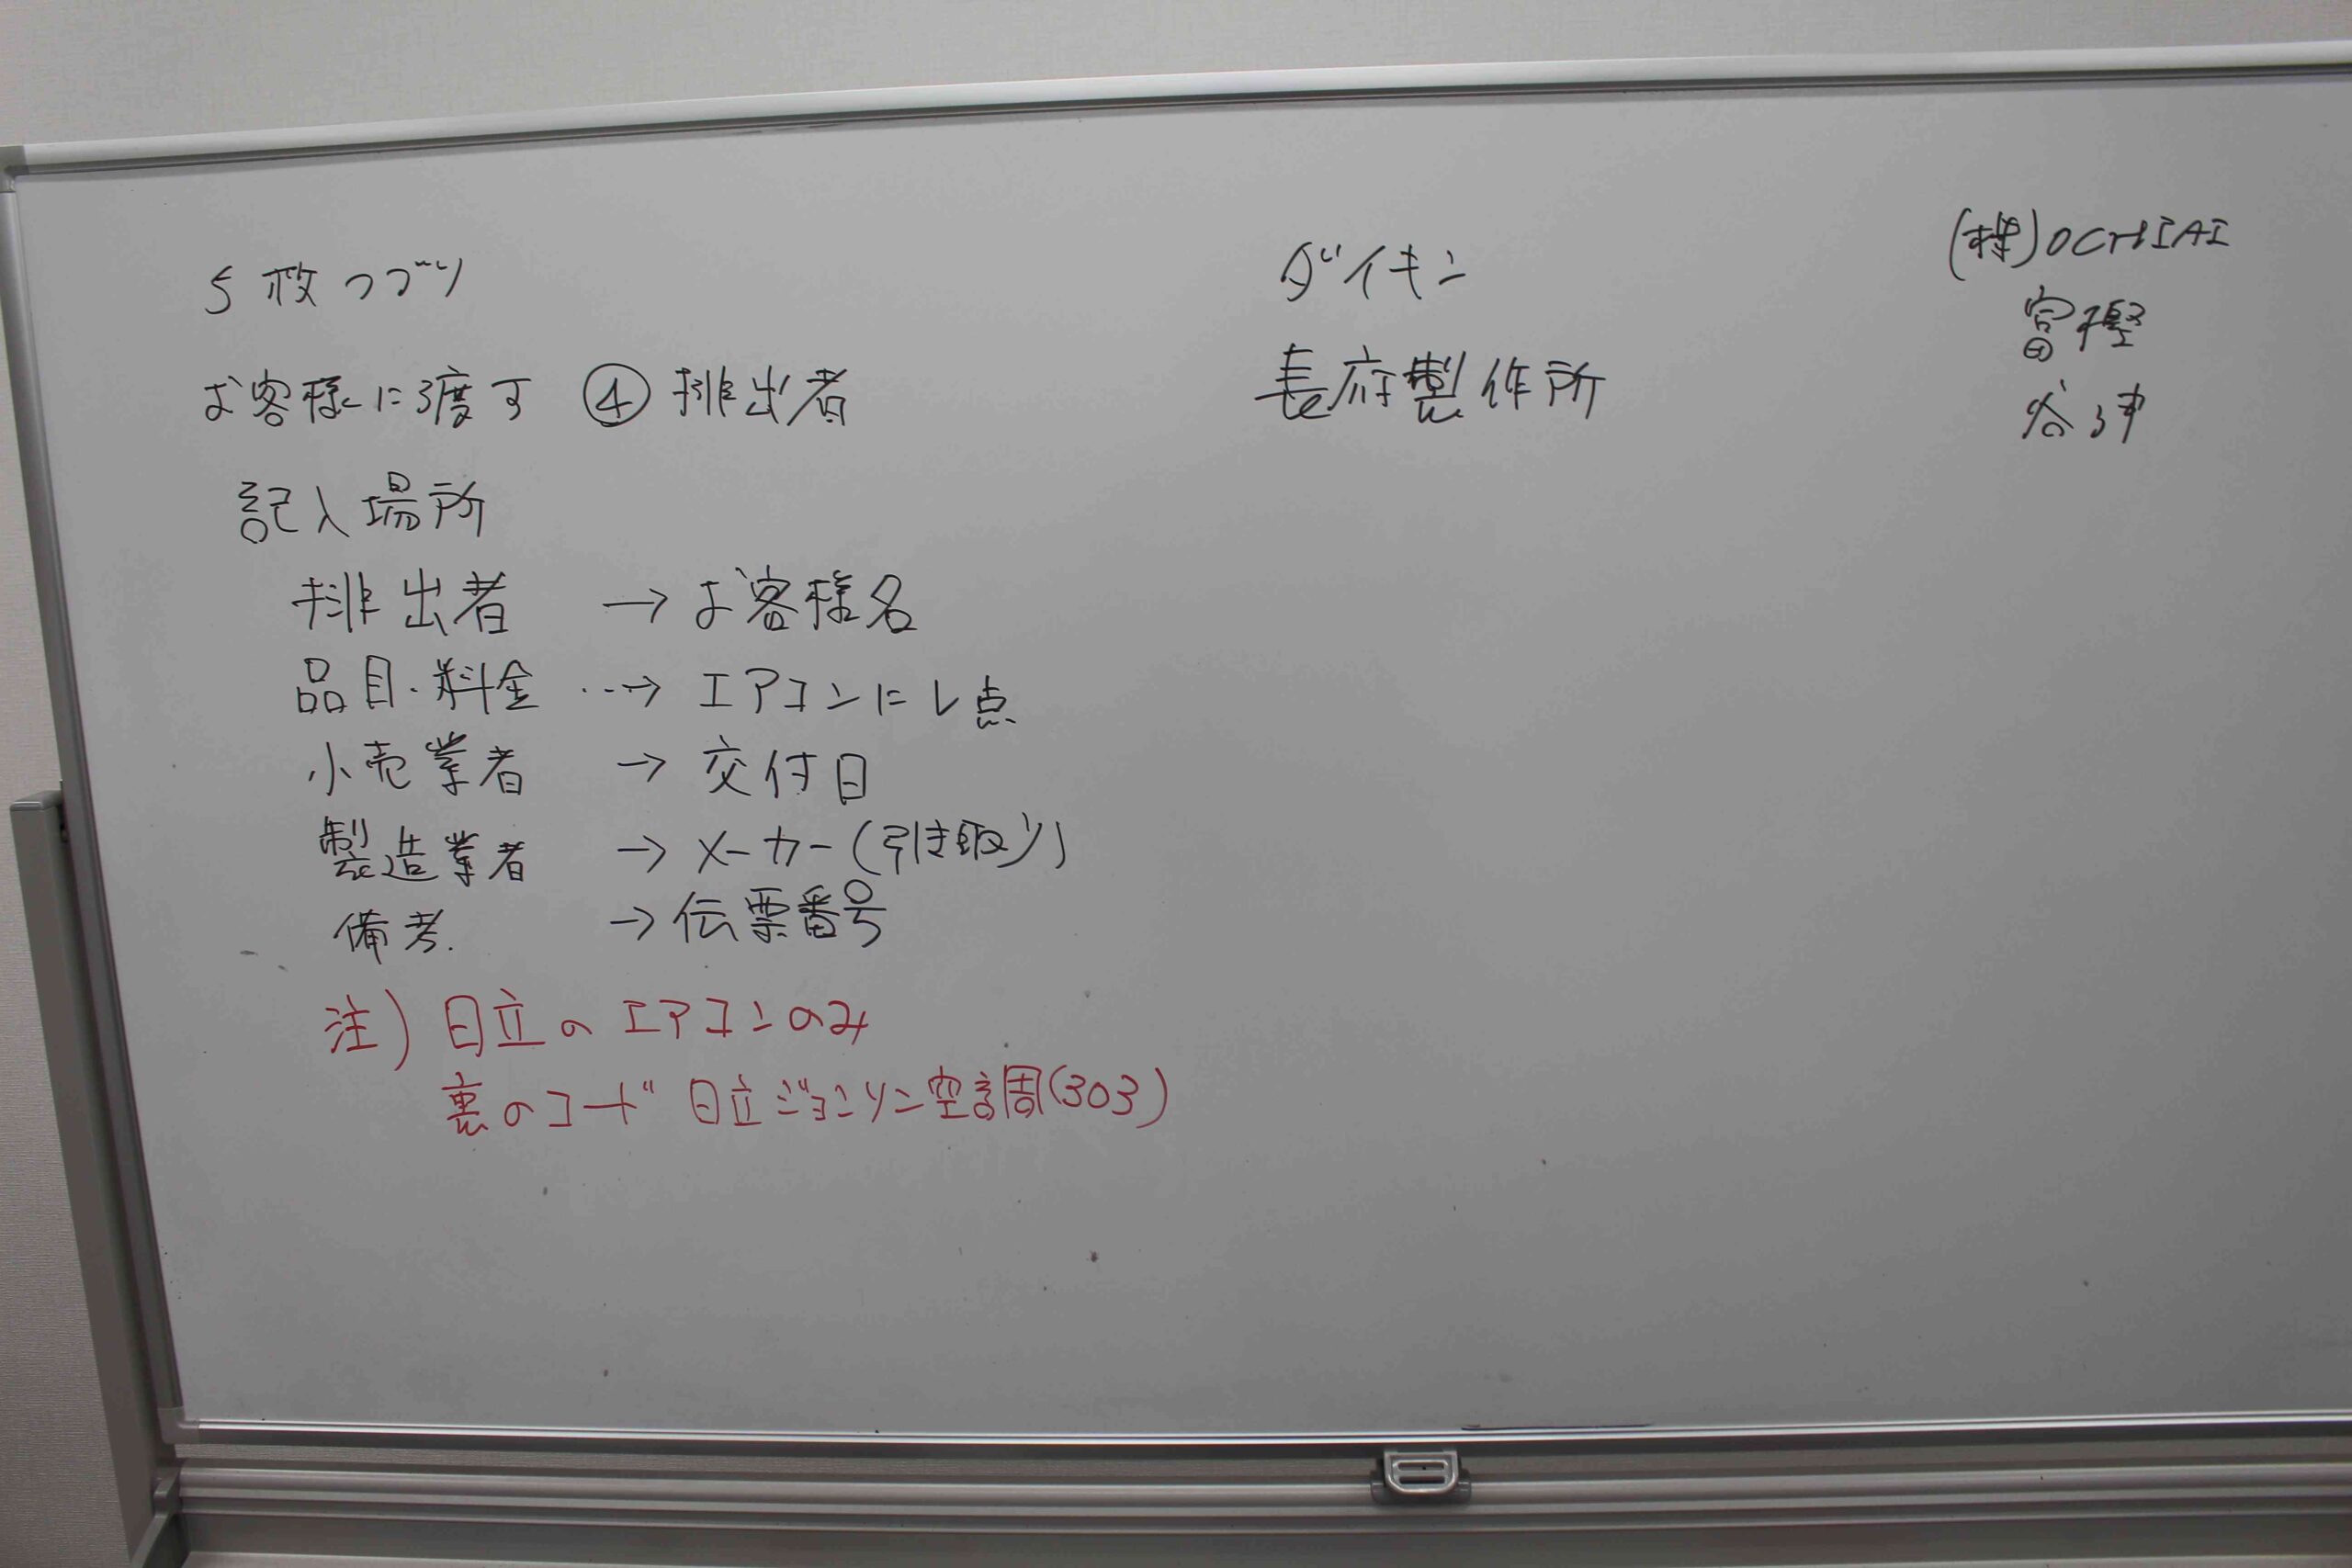 5枚つづり
お客様に渡す ④ 排出者
記入場所
排出者 → お客様名
品目・料金 …→ エアコンにレ点
小売業者 → 交付日
製造業者 → メーカー(引き取り)
備考. → 伝票番号
注) 日立のエアコンのみ
裏のコード 日立ジョンソン空調(303)
ダイキン
長府製作所
(株)OCHIAI
富樫